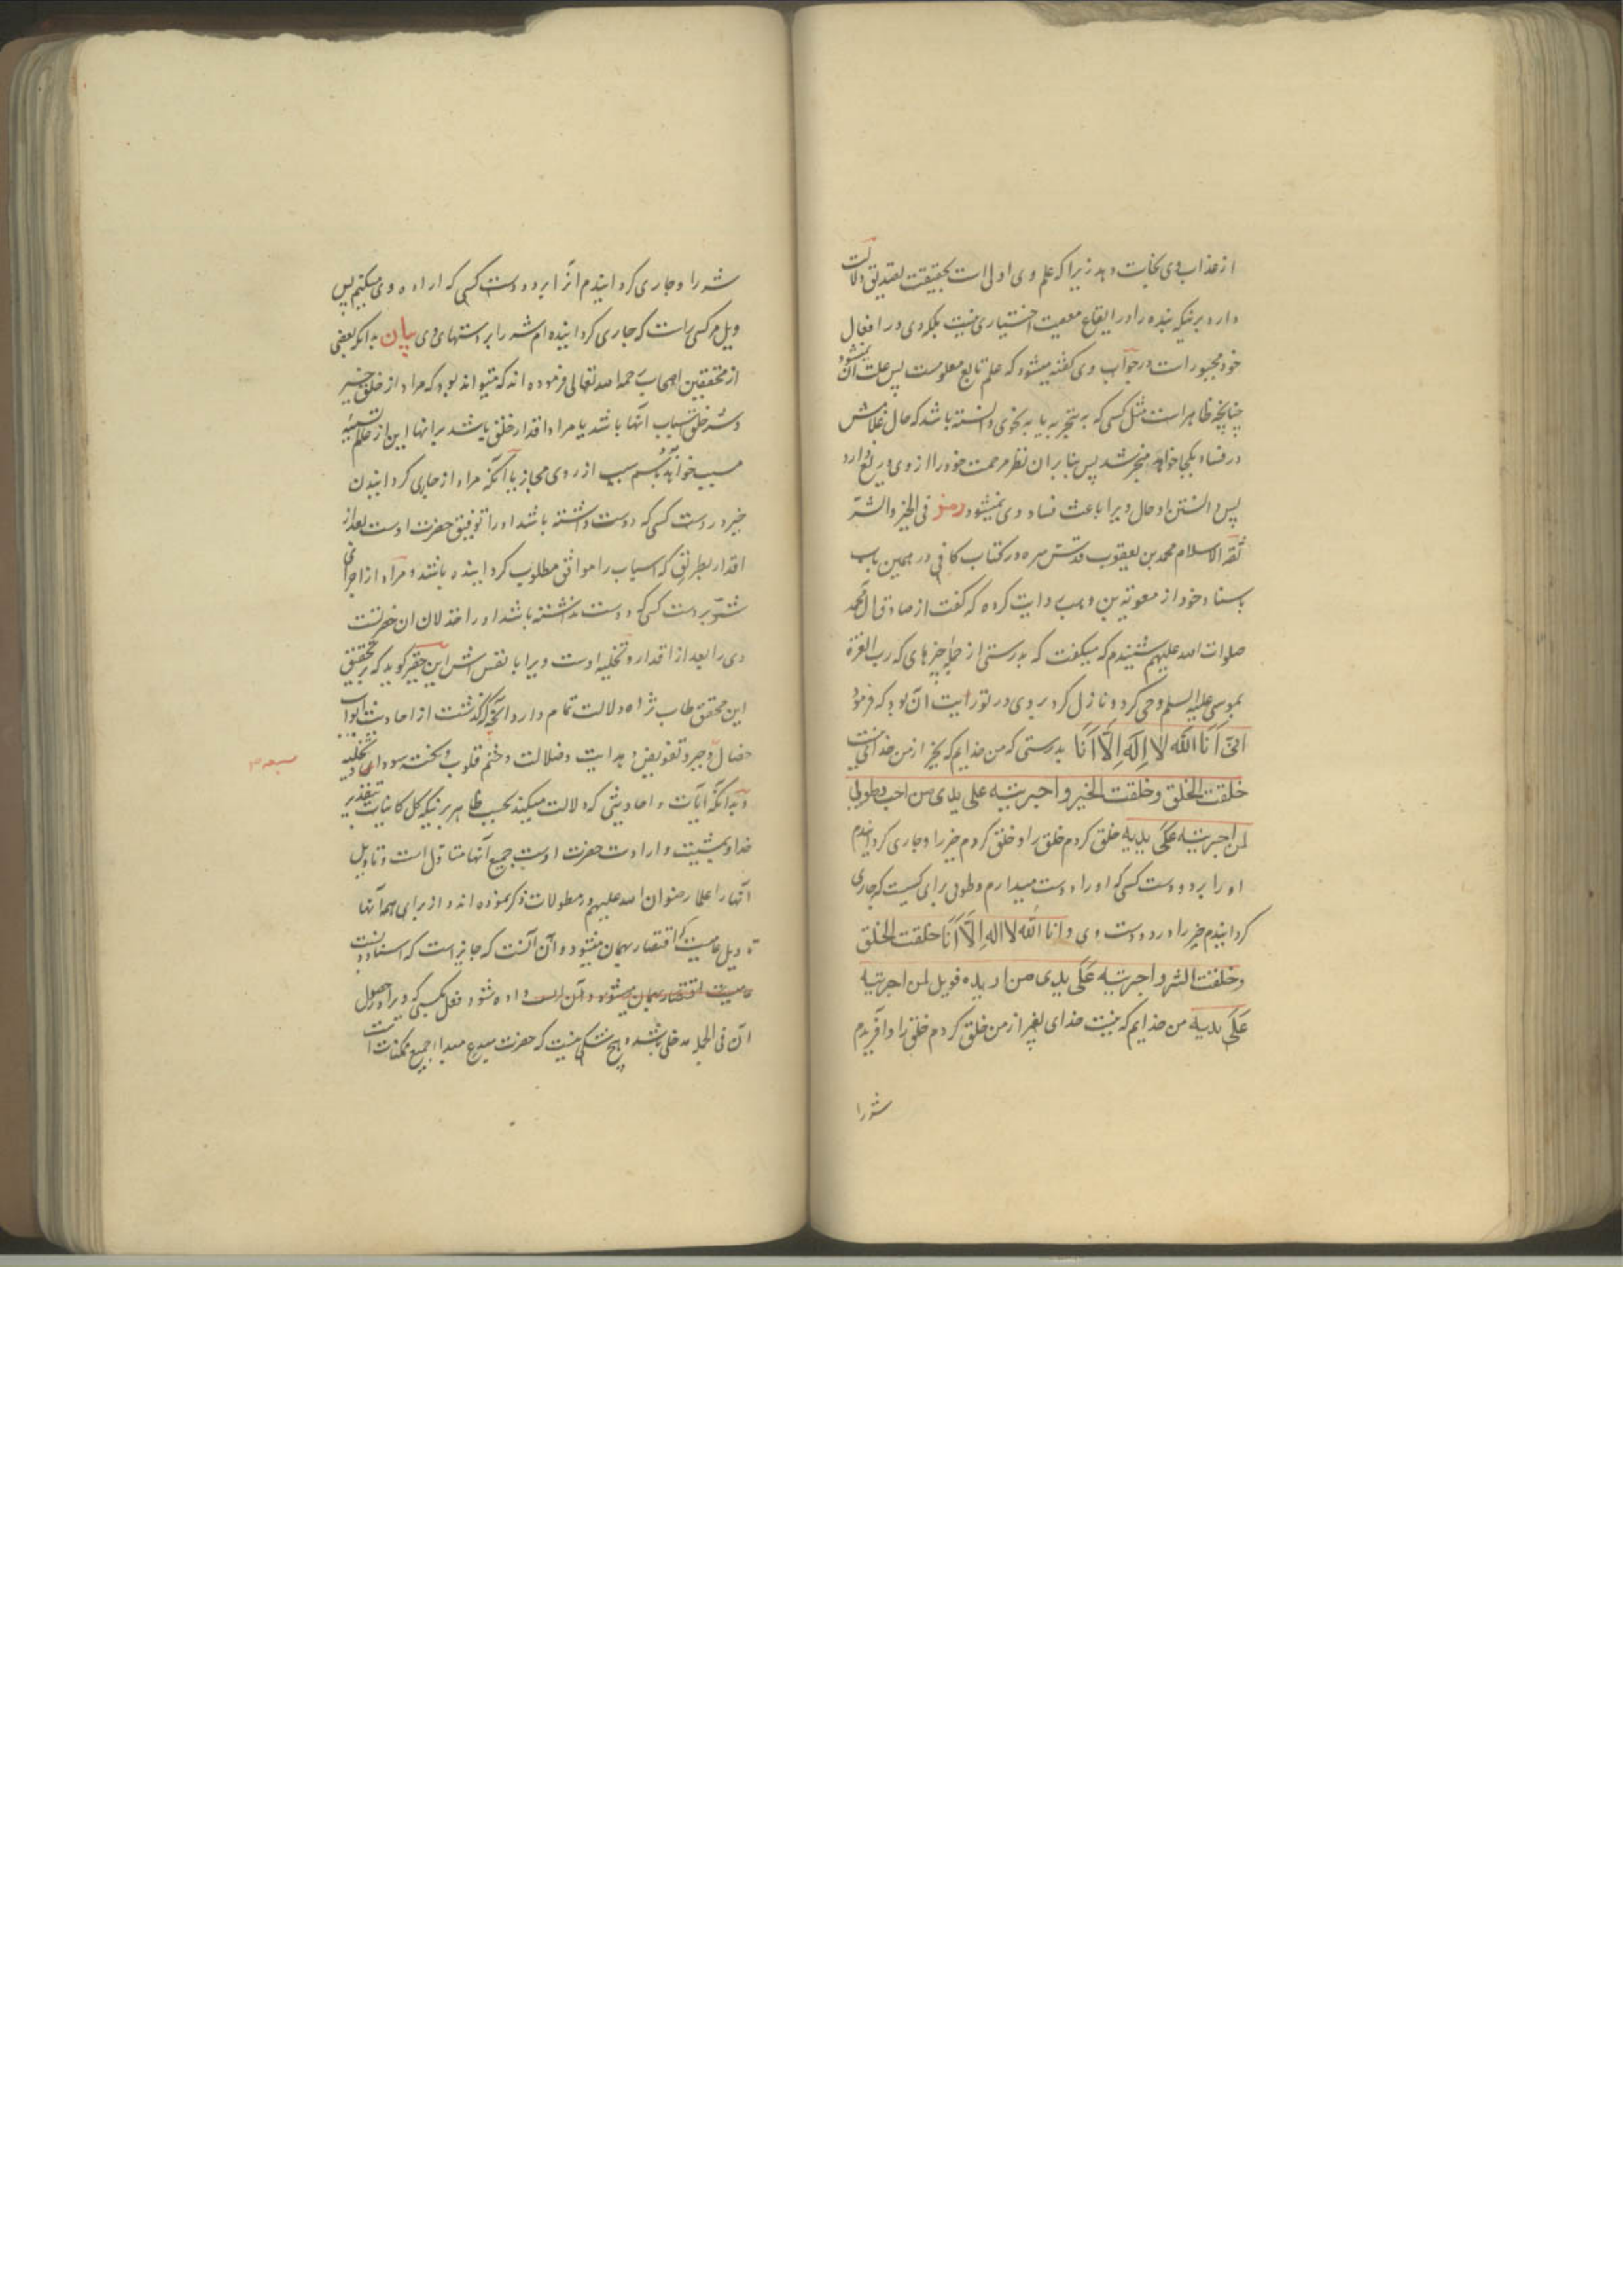 از عذاب وی نجات دهد زیرا که علم وی ازلی است بحقیقت تصدیق دلالت
دارد برینکه بنده را در ایقاع معصیت اختیاری نیست بلکه وی در افعال
خود مجبور است در جواب وی گفته میشود که علم تابع معلومست پس علت آن نمیشود
چنانچه ظاهر است مثل کسی که به تجربه یا به نحوی دانسته باشد که حال غلامش
در فساد بکجا خواهد منجر شد پس بنا بر آن نظر مرحمت خود را از وی دریغ دارد
پس دانستن او حال ویرا باعث فساد وی نمیشود رمز فی الخیر والشر
ثقة الاسلام محمد بن یعقوب قدس سره در کتاب کافی در همین باب
باسناد خود از معویة بن وهب روایت کرده که گفت از صادق آل محمد
صلوات الله علیهم شنیدم که میگفت که بدرستی از جمله چیزهای که رب العزة
بموسی علیه السلم وحی کرد و نازل کرد بر وی در تورایت آن بود که فرمود
انی انا الله لا اله الا انا بدرستی که من خدایم که بجز از من خدائی نیست
خلقت الخلق وخلقت الخیر و اجریته علی یدی من احب فطوبی
لمن اجریته علی یدیه خلق کردم خلق را و خلق کردم خیر را و جاری گردانیدم
او را بر دو دست کسی که او را دوست میدارم و طوبی برای کسیست که جاری
گردانیدم خیر را در دو دست وی و انا الله لا اله الا انا خلقت الخلق
وخلقت الشر و اجریته علی یدی من اریده فویل لمن اجریته
علی یدیه من خدایم که نیست خدای بغیر از من خلق کردم خلق را و آفریدم
شر را
شر را و جاری گردانیدم آنرا بر دو دست کسی که اراده وی میکنم پس
ویل مر کسی راست که جاری گردانیده ام شر را بر دستهای وی بیان بدانکه بعضی
از محققین اصحاب رحمه الله تعالی فرموده اند که میتواند بود که مراد از خلق خیر
و شر خلق اسباب آنها باشد یا مراد اقدار خلق باشد بر آنها این از عالم تسمیه
مسبب خواهد بود بسم سبب از روی مجاز یا آنکه مراد از جاری گردانیدن
خیر در دست کسی که دوست داشته باشد او را توفیق حضرت اوست بعد از
اقدار بطریقی که اسباب را موافق مطلوب گردانیده باشد و مراد از اجرای
شر بر دست کسی که دوست نداشته باشد او را خذلان آن حضرتست
وی را بعد از اقدار و تخلیه اوست ویرا با نفس اش این حقیر گوید که بر تحقیق
این محقق طاب ثراه دلالت تمام دارد آنچه گذشت از احادیث ابواب
ضال و جبر و تفویض و هدایت و ضلالت و ختم قلوب و نکت سودا و تخلیه
و بدانکه آیات و احادیثی که دلالت میکند بحسب ظاهر برینکه کل کاینات بتقدیر
خدا و بمشیت و ارادت حضرت اوست جمیع آنها متاول است و تاویل
آنها را علما رضوان الله علیهم در مطولات ذکر نموده اند و از برای همه آنها
تاویل عامیست که اقتصار بهمان میشود و آن آنست که جایز است که اسناد
عامیست اقتصار بهمان میشود و آن است داده شود فعل بکسی که ویرا در حصول
آن فی الجمله دخلی باشد و هیچ شکی نیست که حضرت مبدع مبدا جمیع ممکنات است